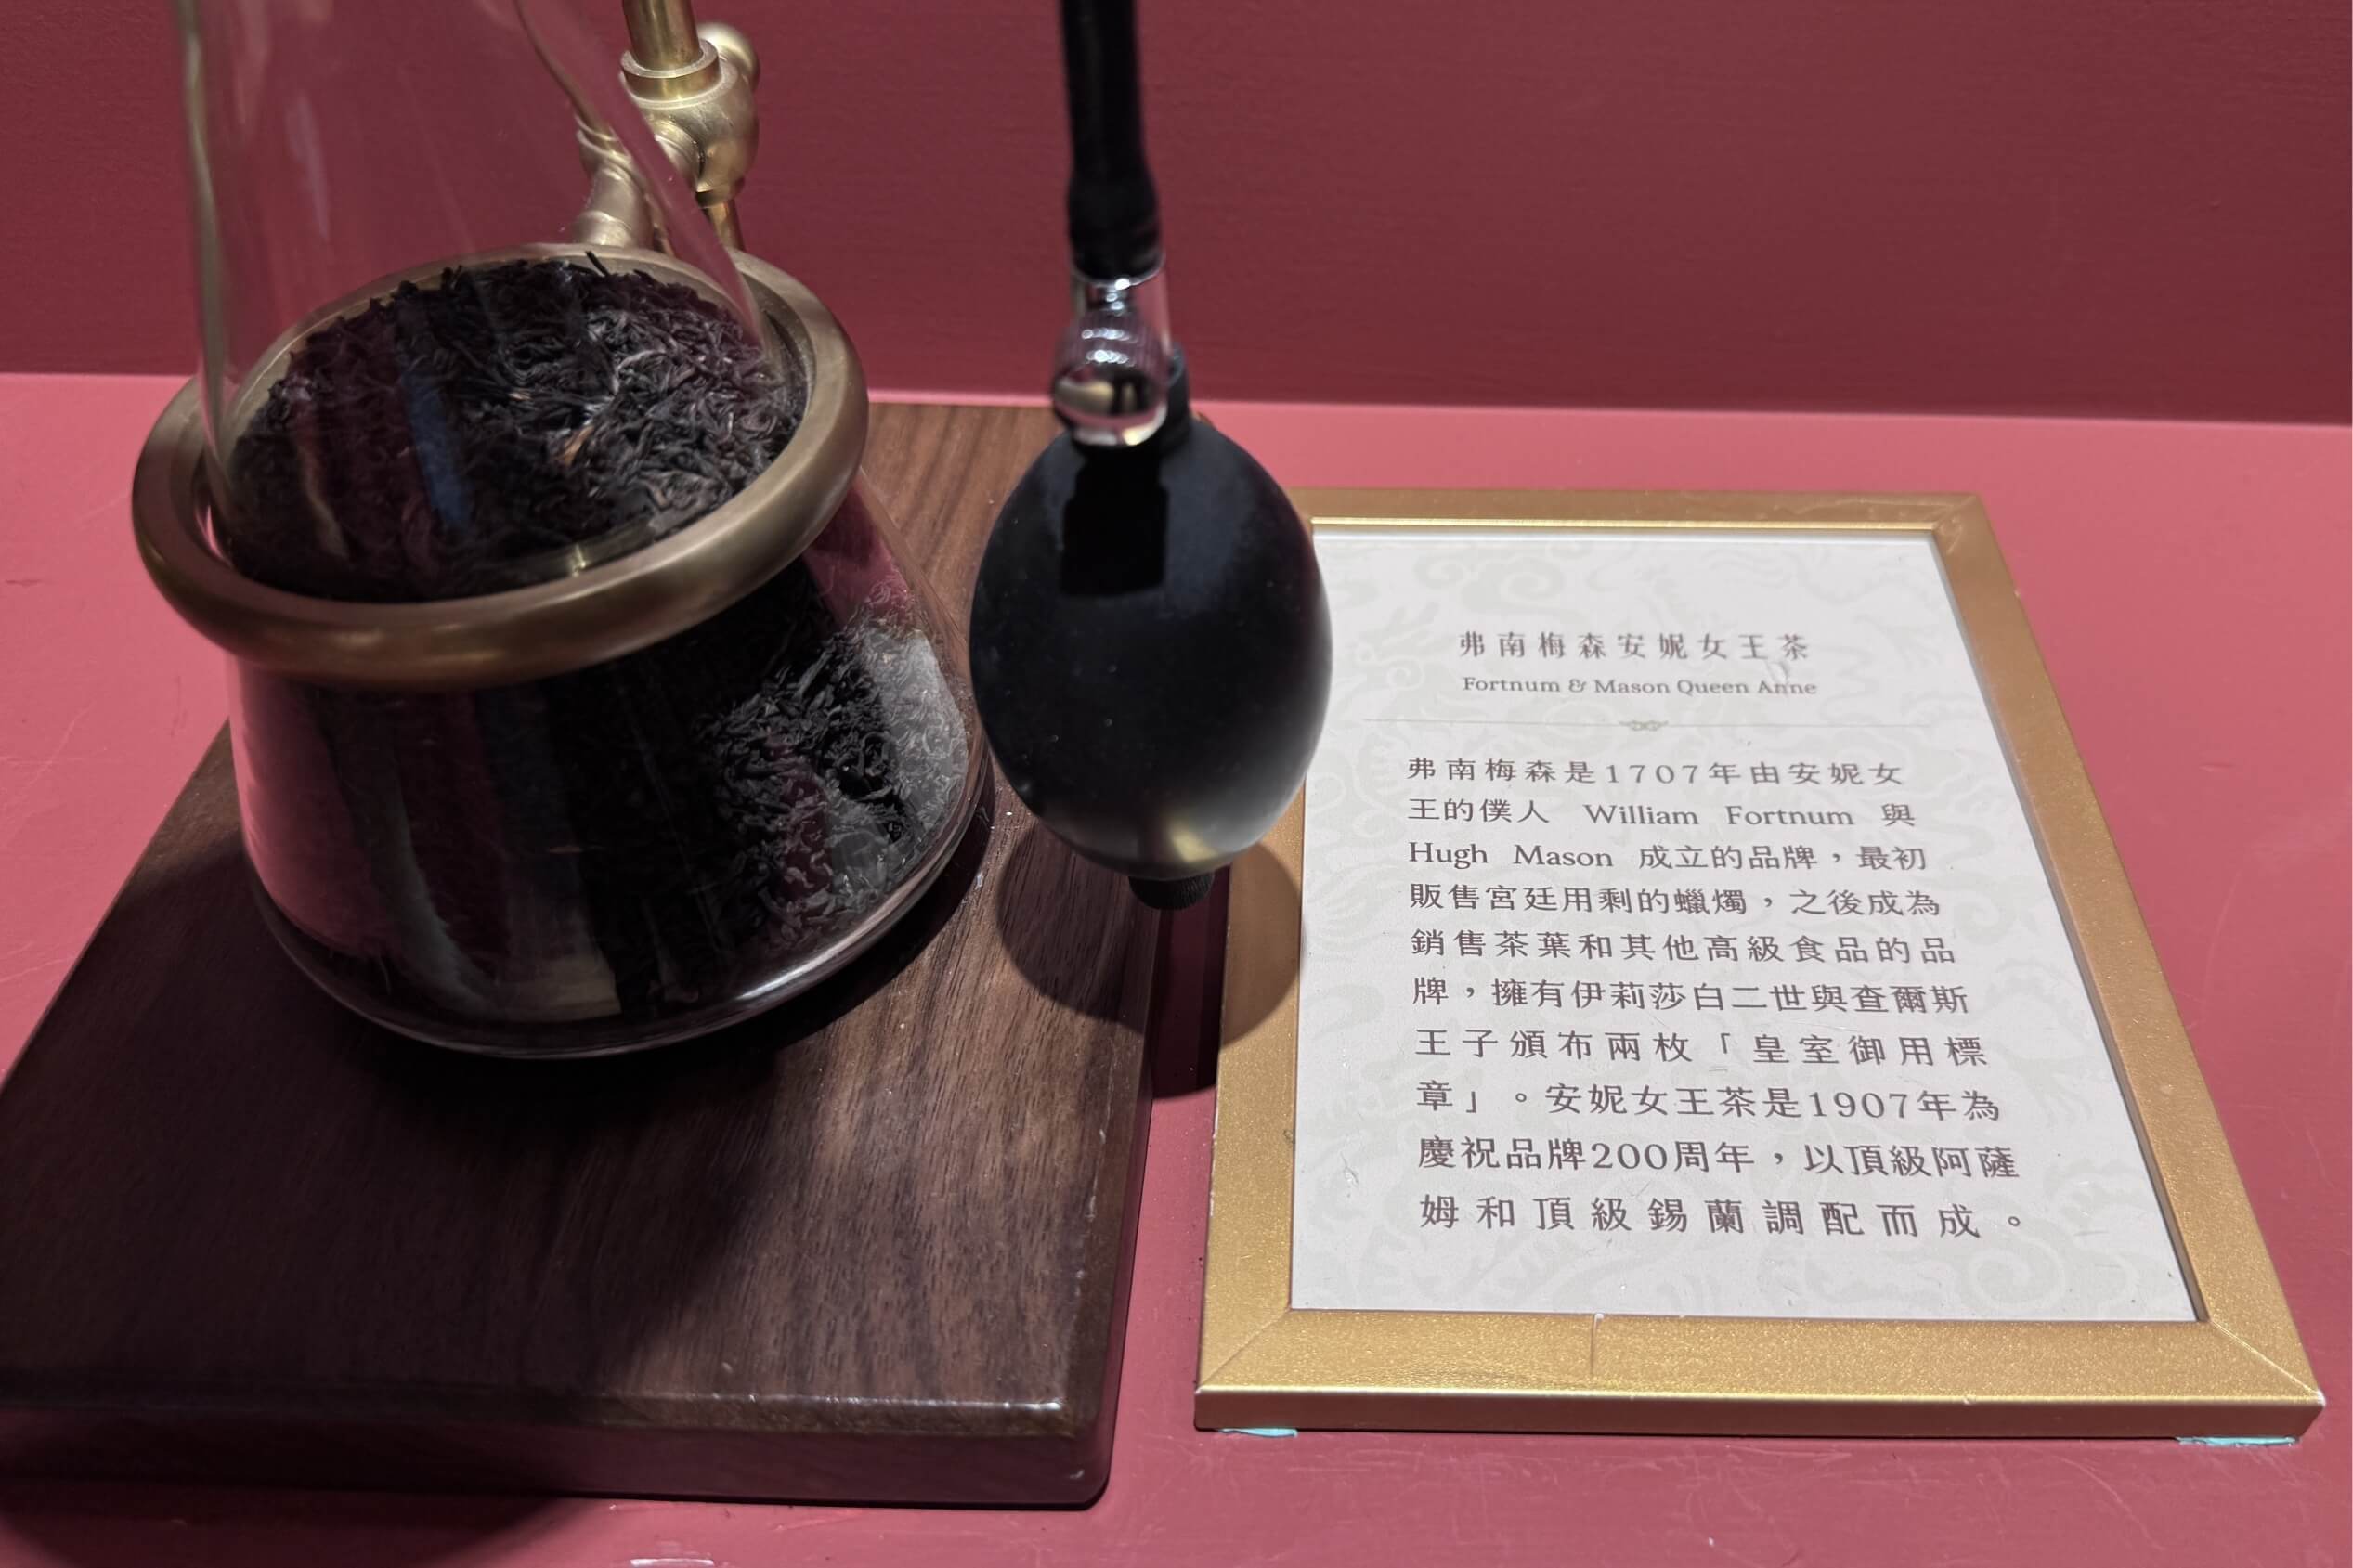 弗南梅森安妮女王茶
Fortnum & Mason Queen Anne
弗南梅森是1707年由安妮女
王的僕人 William Fortnum 與
Hugh Mason 成立的品牌，最初
販售宮廷用剩的蠟燭，之後成為
銷售茶葉和其他高級食品的品
牌，擁有伊莉莎白二世與查爾斯
王子頒布兩枚「皇室御用標
章」。安妮女王茶是1907年為
慶祝品牌200周年，以頂級阿薩
姆和頂級錫蘭調配而成。